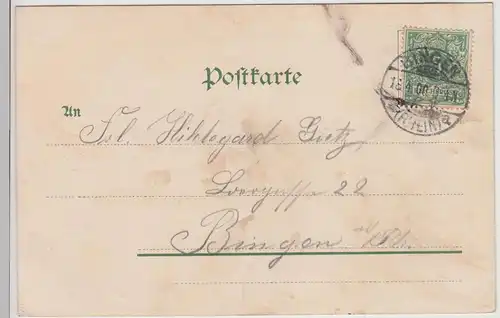 Postkarte
BINGEN
(RHEIN)
An
Frl. Hildegard Goetz,
22
Bingen a/Rh.